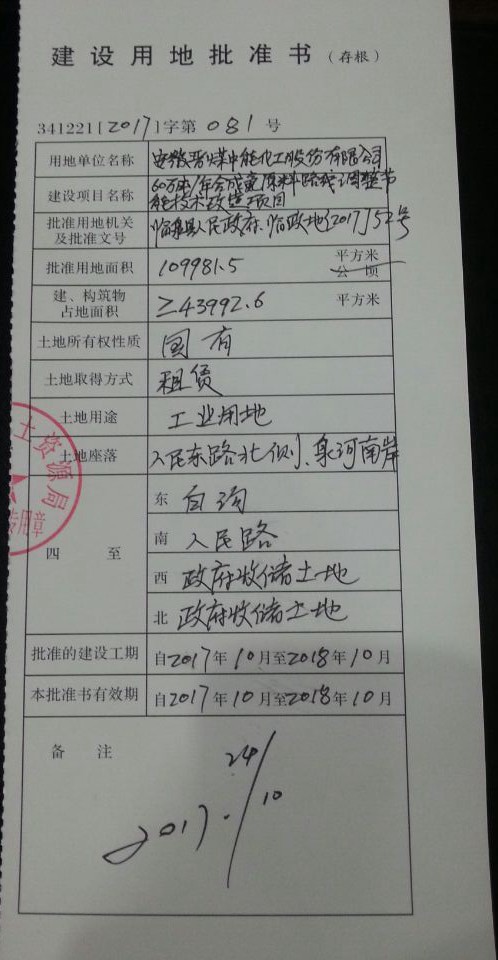 建设用地批准书（存根）
341221[2017]字第081号
用地单位名称 安徽晋煤中能化工股份有限公司
建设项目名称 60万吨/年合成氨原料路线调整节
能技术改造项目
批准用地机关
及批准文号 临泉县人民政府、临政地[2017]52号
批准用地面积 109981.5 平方米
公顷
建、构筑物
占地面积 ≥43992.6 平方米
土地所有权性质 国有
土地取得方式 租赁
土地用途 工业用地
土地座落 人民东路北侧、泉河南岸
四至
东 自沟
南 人民路
西 政府收储土地
北 政府收储土地
批准的建设工期 自2017年10月至2018年10月
本批准书有效期 自2017年10月至2018年10月
备注
24/10
2017.
土资源局
专用章